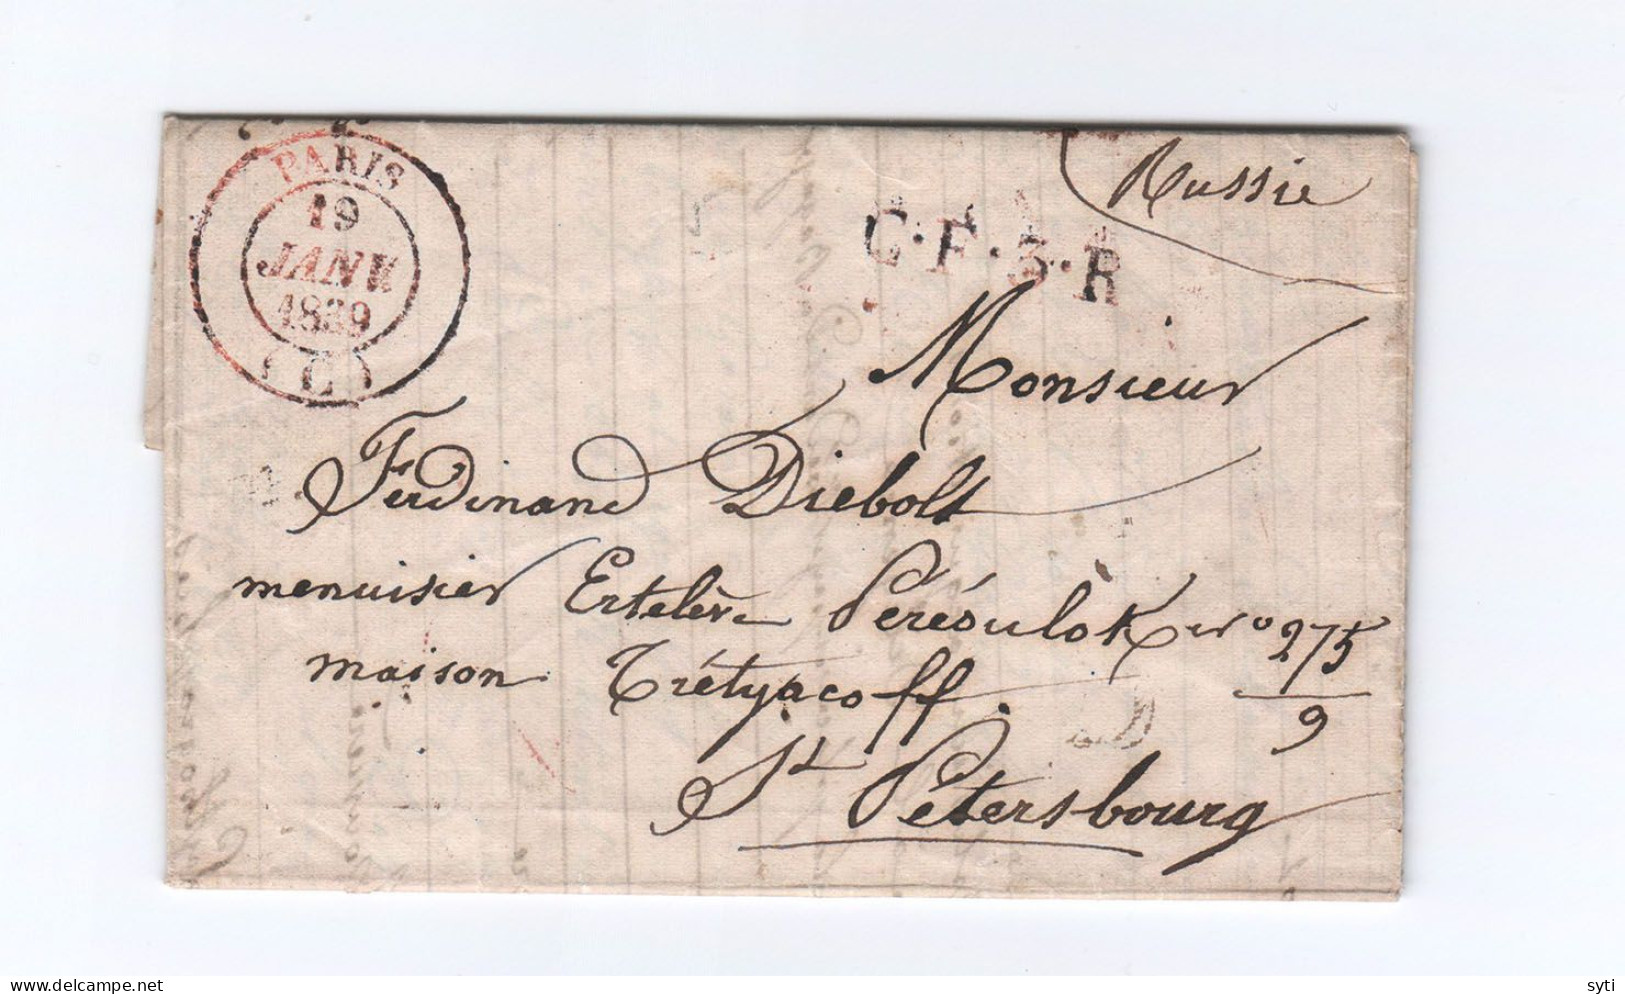 PARIS
19
JANV
1839
(L)
C.F.3.R
Russie
Monsieur
Ferdinand Diebolt
menuisier Ertelèv Péréoulok no 275
9
maison Trétyacoff.
St Petersbourg
delcampe.net
syti